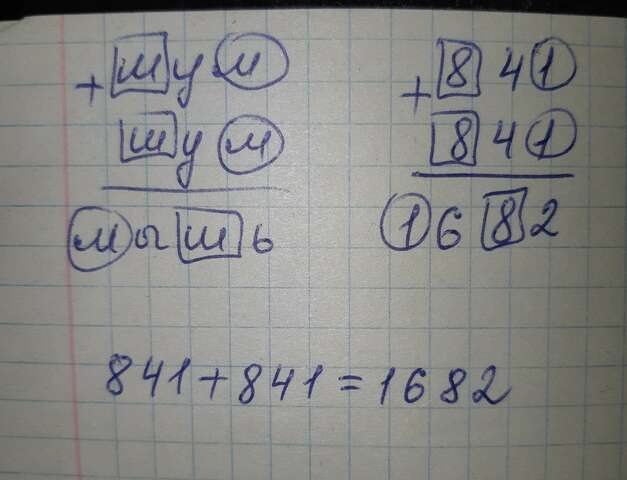 + шум 841
+ шум 841
мышь 1682
841+841=1682